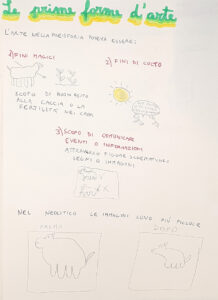 Le prime forme d'arte
L'ARTE NELLA PREISTORIA POTEVA ESSERE:
1) FINI MAGICI
2) FINI DI CULTO
SCOPO DI BUON ESITO
ALLA CACCIA O LA
FERTILITÀ NEI CAMPI
3) SCOPO DI COMUNICARE
EVENTI O INFORMAZIONI
ATTRAVERSO FIGURE SCHEMATICHE
SEGNI O IMMAGINI
NEL NEOLITICO LE IMMAGINI SONO PIÙ PICCOLE
PRIMA
DOPO